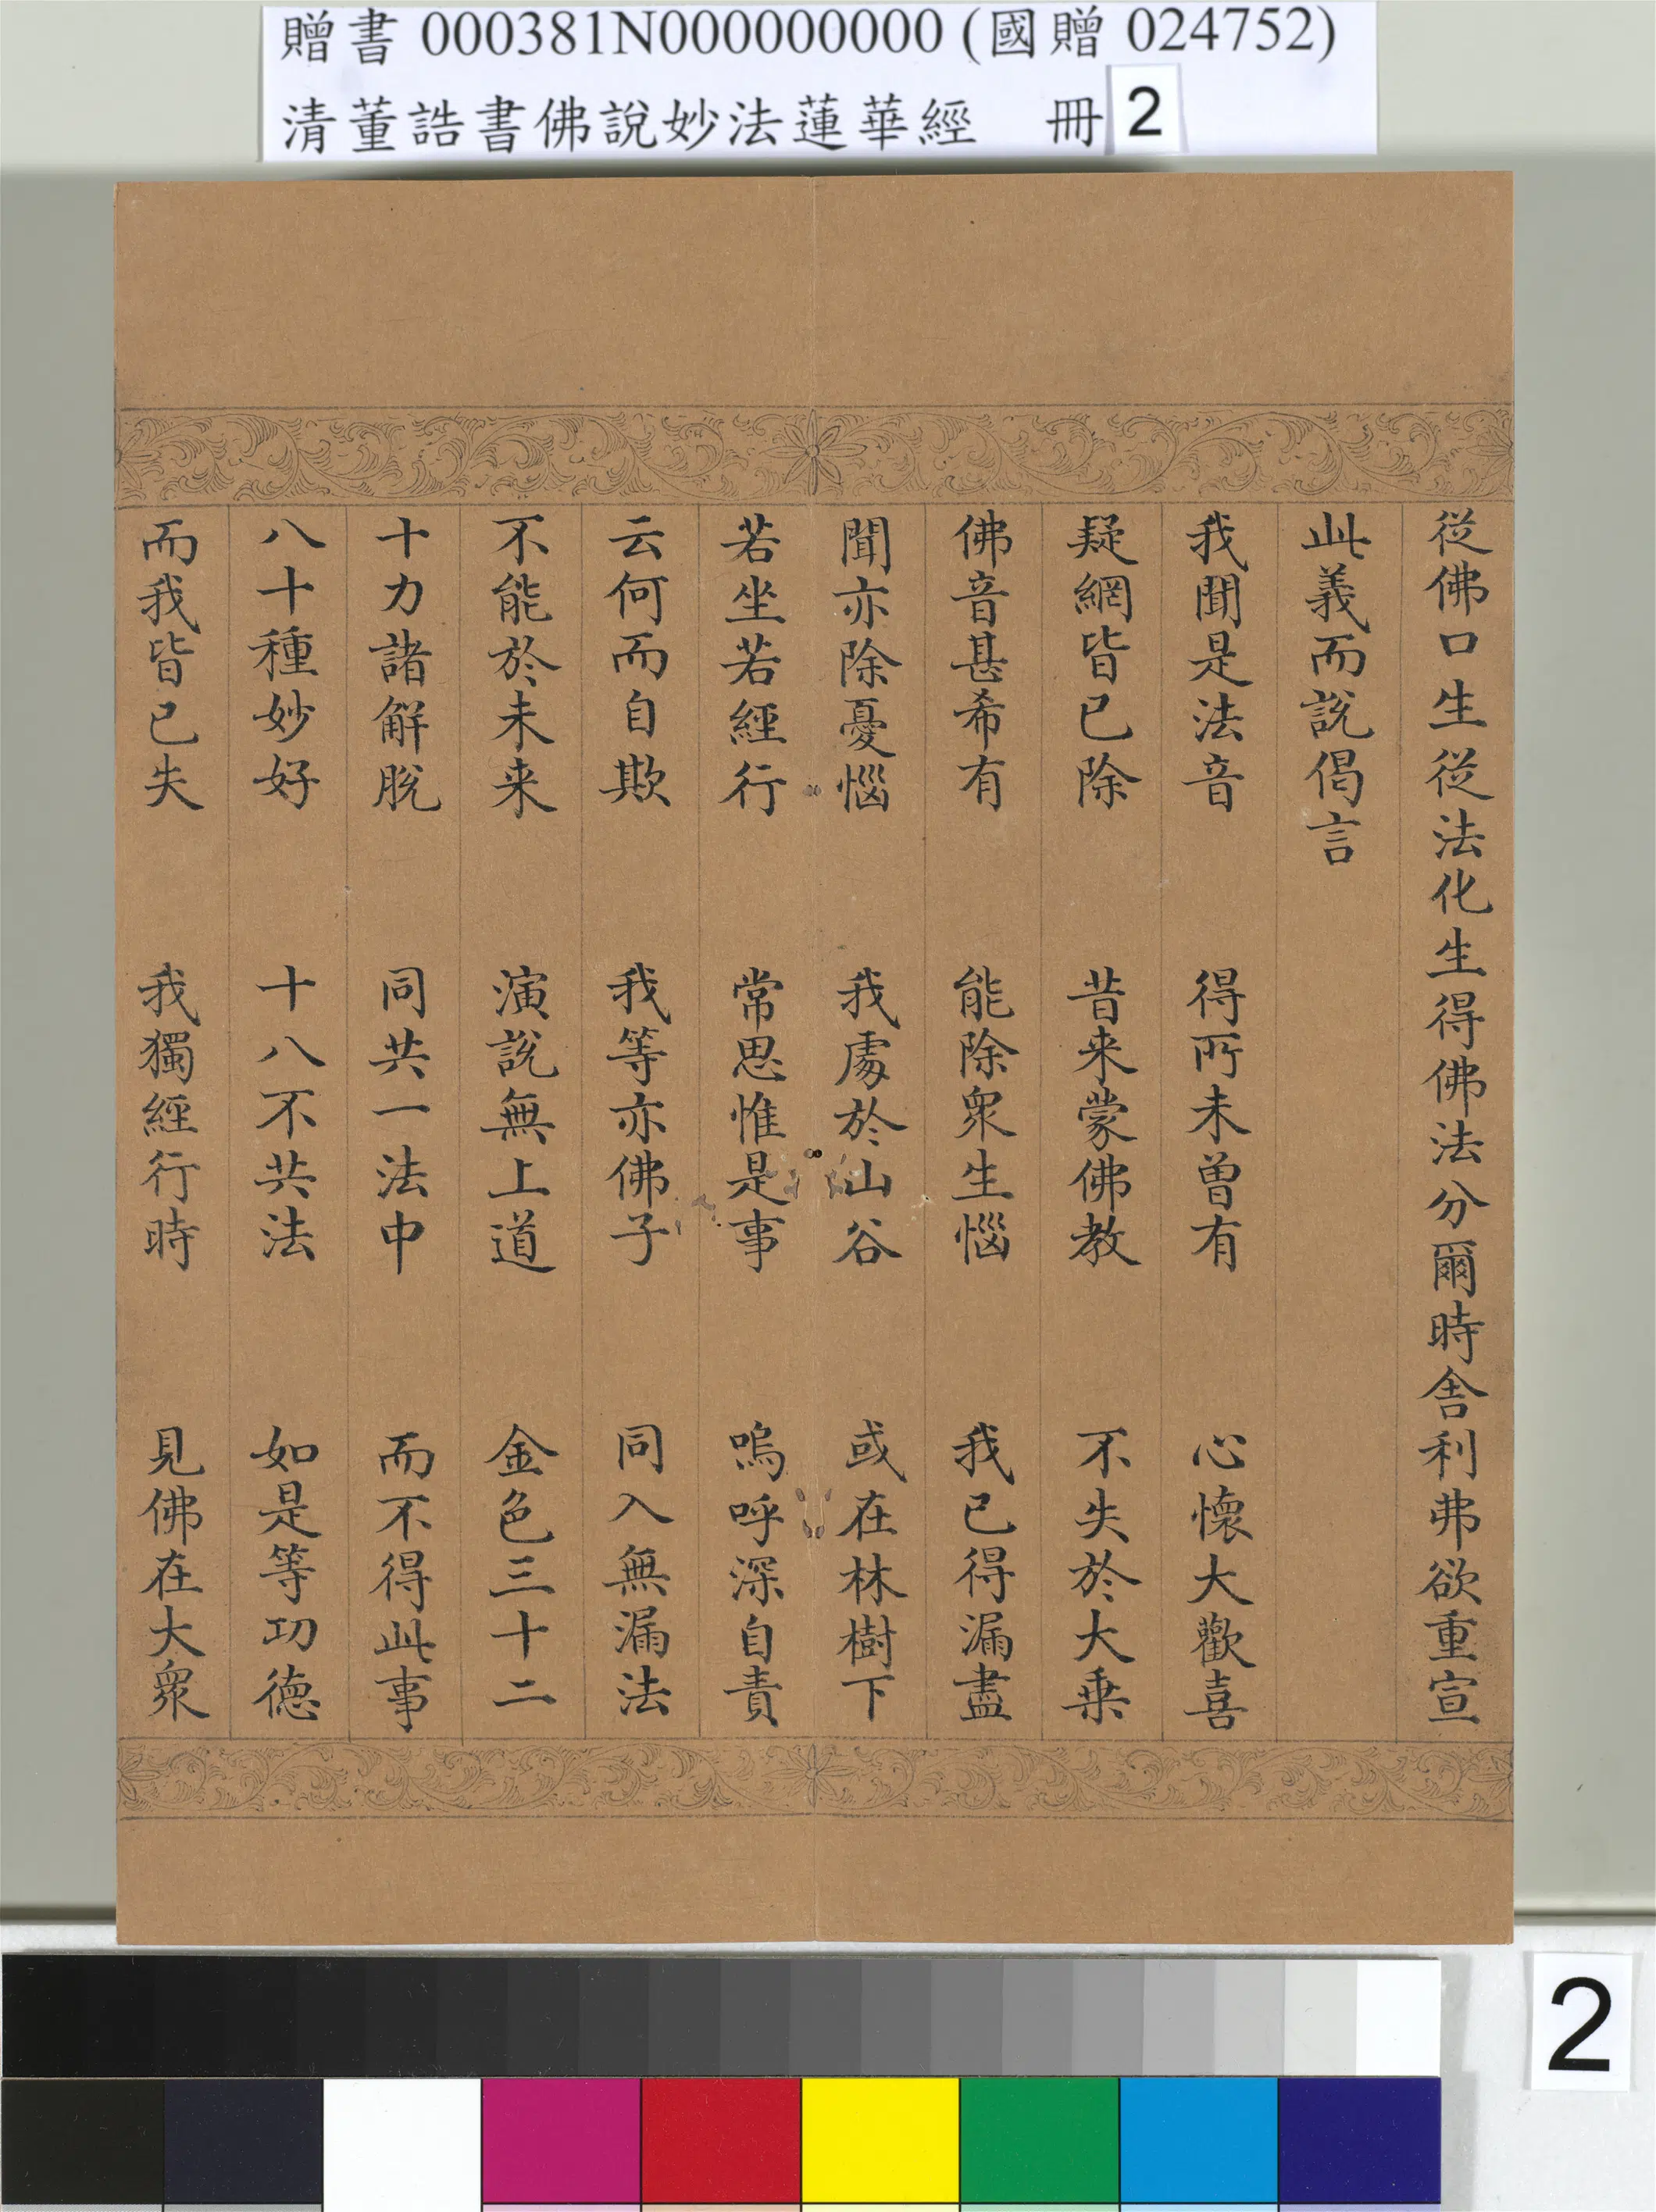 贈書 000381N000000000 (國贈 024752)
清董誥書佛說妙法蓮華經 冊 2
從佛口生從法化生得佛法分爾時舍利弗欲重宣
此義而說偈言
我聞是法音 得所未曾有 心懷大歡喜
疑網皆已除 昔来蒙佛教 不失於大乗
佛音甚希有 能除衆生惱 我已得漏盡
聞亦除憂惱 我處於山谷 或在林樹下
若坐若經行 常思惟是事 嗚呼深自責
云何而自欺 我等亦佛子 同入無漏法
不能於未来 演說無上道 金色三十二
十力諸解脫 同共一法中 而不得此事
八十種妙好 十八不共法 如是等功德
而我皆已失 我獨經行時 見佛在大衆
2